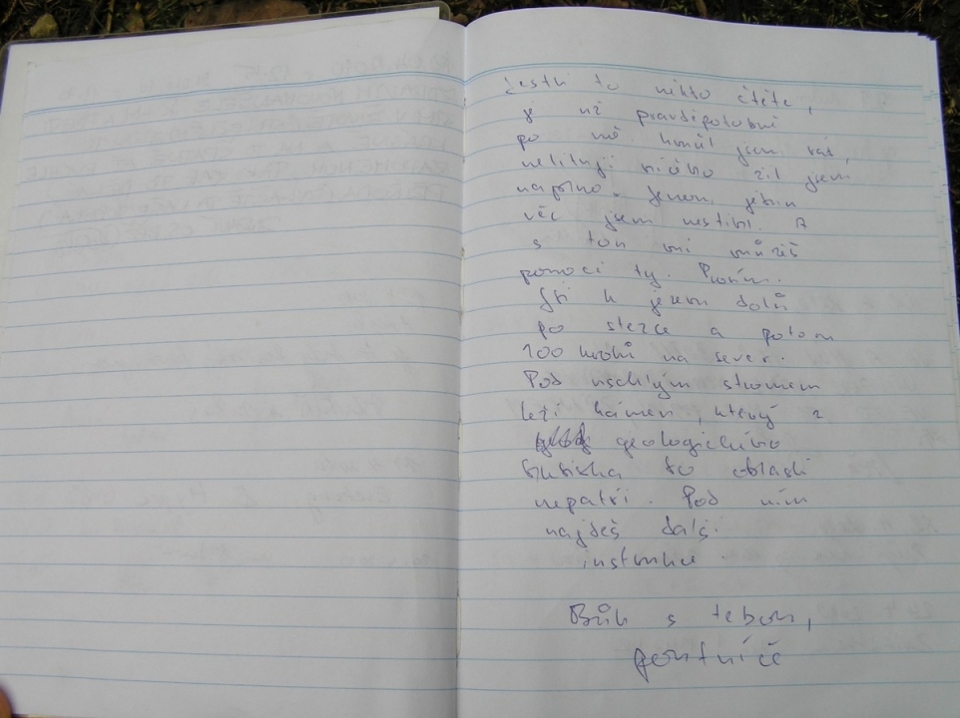 Jestli to někdo čtěte,
je už pravděpodobně
po mě. Umřel jsem rád,
nelituji ničeho žil jsem
naplno. Jenom jednu
věc jsem nestihl. A
s tou mi můžeš
pomoci ty. Prosím.
Jdi k jezeru dolů
po stezce a potom
100 kroků na sever.
Pod uschlým stromem
leží kámen, který z
geologického
hlediska to oblasti
nepatří. Pod ním
najdeš další
instrukce.
Bůh s tebou,
poutníče